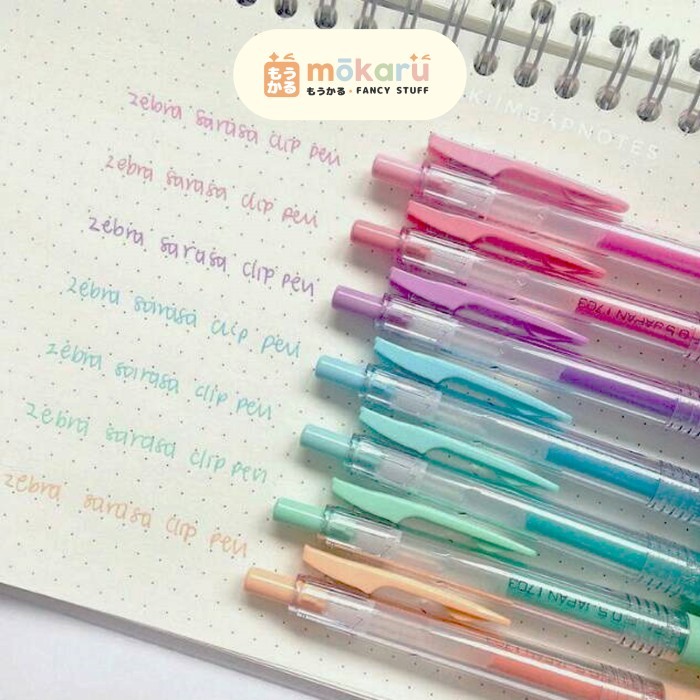 もうかる mōkaru
もうかる • FANCY STUFF
KIIMBAPNOTES
zebra sarasa clip pen
zebra sarasa clip pen
zebra sarasa clip pen
zebra sarasa clip pen
zebra sarasa clip pen
zebra sarasa clip pen
zebra sarasa clip pen
0.5 JAPAN 1703
0.5 JAPAN 1703